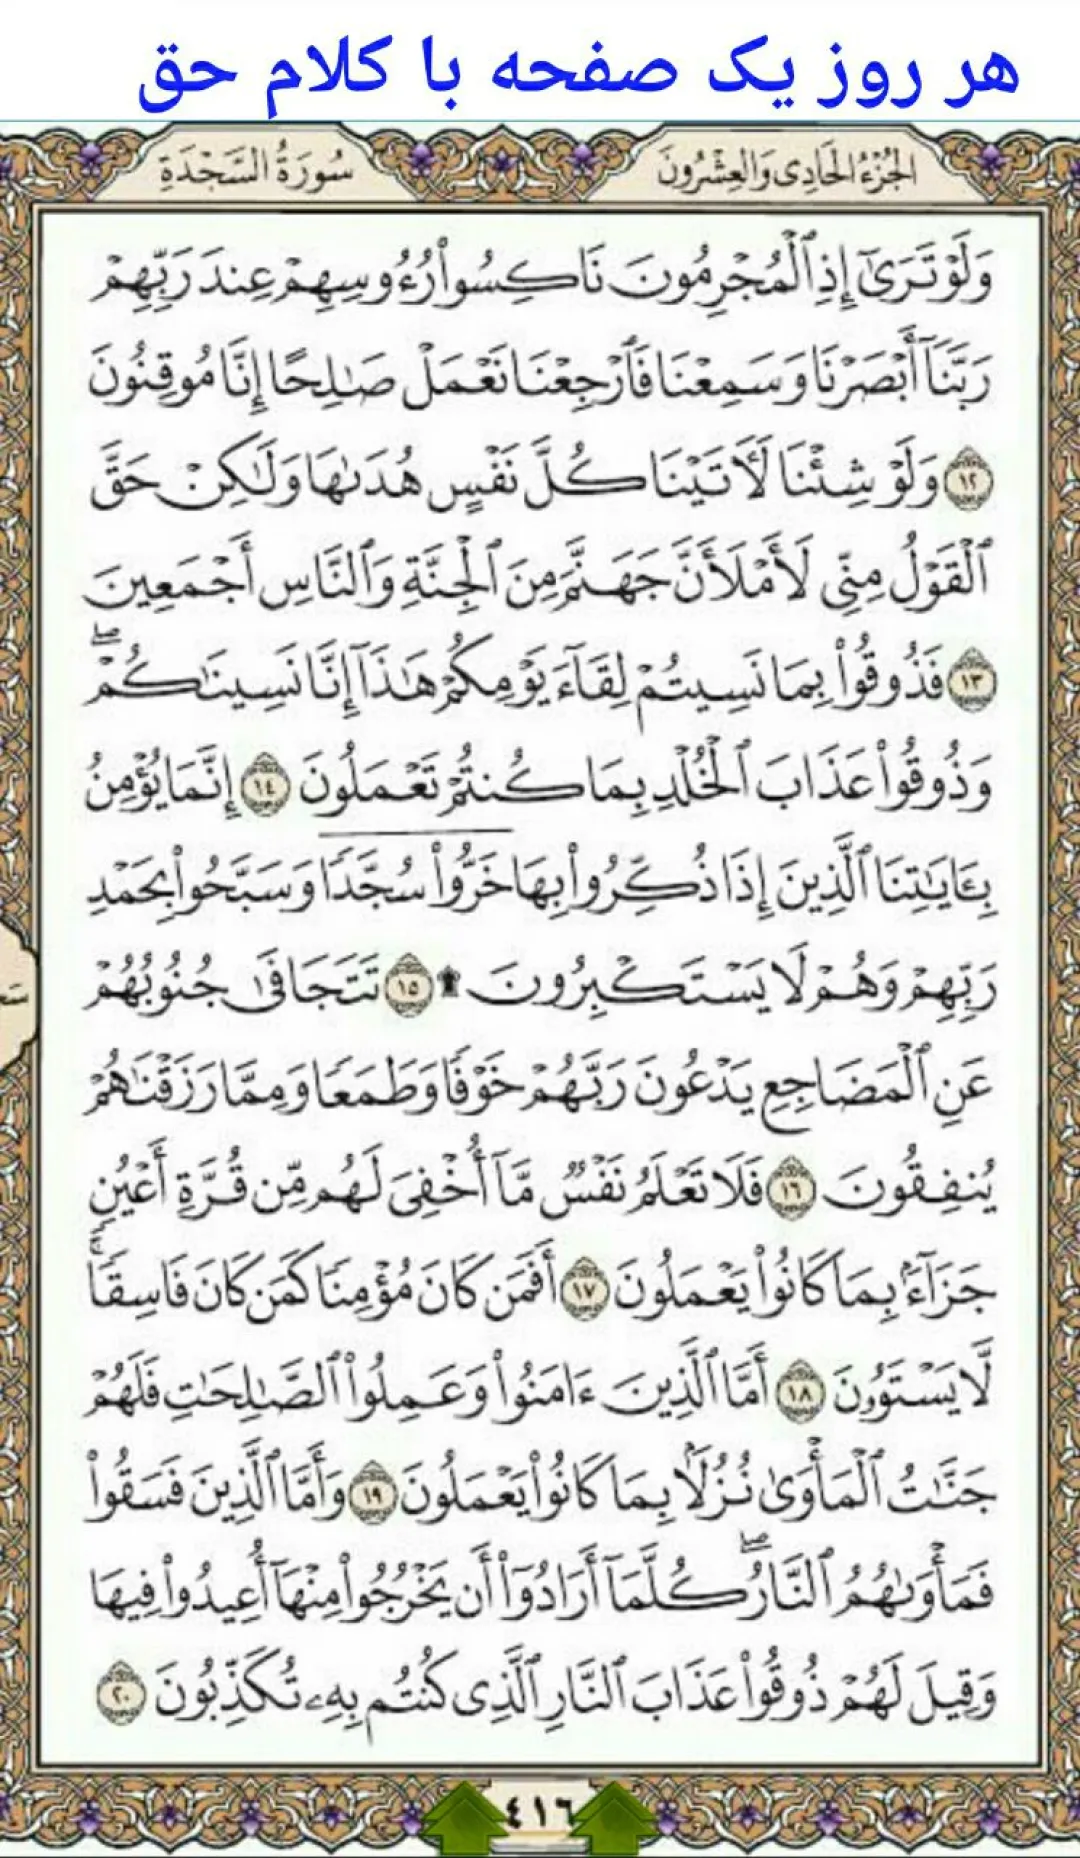 هر روز یک صفحه با کلام حق
الجُزْءُ الحَادِی وَالعِشْرُونَ
سُورَةُ السَّجْدَةِ
وَلَوْ تَرَىٰٓ إِذِ ٱلْمُجْرِمُونَ نَاكِسُواْ رُءُوسِهِمْ عِندَ رَبِّهِمْ
رَبَّنَآ أَبْصَرْنَا وَسَمِعْنَا فَٱرْجِعْنَا نَعْمَلْ صَٰلِحًا إِنَّا مُوقِنُونَ
١٢ وَلَوْ شِئْنَا لَأٓتَيْنَا كُلَّ نَفْسٍ هُدَىٰهَا وَلَٰكِنْ حَقَّ
ٱلْقَوْلُ مِنِّي لَأَمْلَأَنَّ جَهَنَّمَ مِنَ ٱلْجِنَّةِ وَٱلنَّاسِ أَجْمَعِينَ
١٣ فَذُوقُواْ بِمَا نَسِيتُمْ لِقَآءَ يَوْمِكُمْ هَٰذَآ إِنَّا نَسِينَٰكُمْۖ
وَذُوقُواْ عَذَابَ ٱلْخُلْدِ بِمَا كُنتُمْ تَعْمَلُونَ ١٤ إِنَّمَا يُؤْمِنُ
بِـَٔايَٰتِنَا ٱلَّذِينَ إِذَا ذُكِّرُواْ بِهَا خَرُّواْ سُجَّدًا وَسَبَّحُواْ بِحَمْدِ
رَبِّهِمْ وَهُمْ لَا يَسْتَكْبِرُونَ ۩ ١٥ تَتَجَافَىٰ جُنُوبُهُمْ
عَنِ ٱلْمَضَاجِعِ يَدْعُونَ رَبَّهُمْ خَوْفًا وَطَمَعًا وَمِمَّا رَزَقْنَٰهُمْ
يُنفِقُونَ ١٦ فَلَا تَعْلَمُ نَفْسٌ مَّآ أُخْفِيَ لَهُم مِّن قُرَّةِ أَعْيُنٍ
جَزَآءَۢ بِمَا كَانُواْ يَعْمَلُونَ ١٧ أَفَمَن كَانَ مُؤْمِنًا كَمَن كَانَ فَاسِقًاۚ
لَّا يَسْتَوُۥنَ ١٨ أَمَّا ٱلَّذِينَ ءَامَنُواْ وَعَمِلُواْ ٱلصَّٰلِحَٰتِ فَلَهُمْ
جَنَّٰتُ ٱلْمَأْوَىٰ نُزُلَۢا بِمَا كَانُواْ يَعْمَلُونَ ١٩ وَأَمَّا ٱلَّذِينَ فَسَقُواْ
فَمَأْوَىٰهُمُ ٱلنَّارُۖ كُلَّمَآ أَرَادُوٓاْ أَن يَخْرُجُواْ مِنْهَآ أُعِيدُواْ فِيهَا
وَقِيلَ لَهُمْ ذُوقُواْ عَذَابَ ٱلنَّارِ ٱلَّذِي كُنتُم بِهِۦ تُكَذِّبُونَ ٢٠
٤١٦